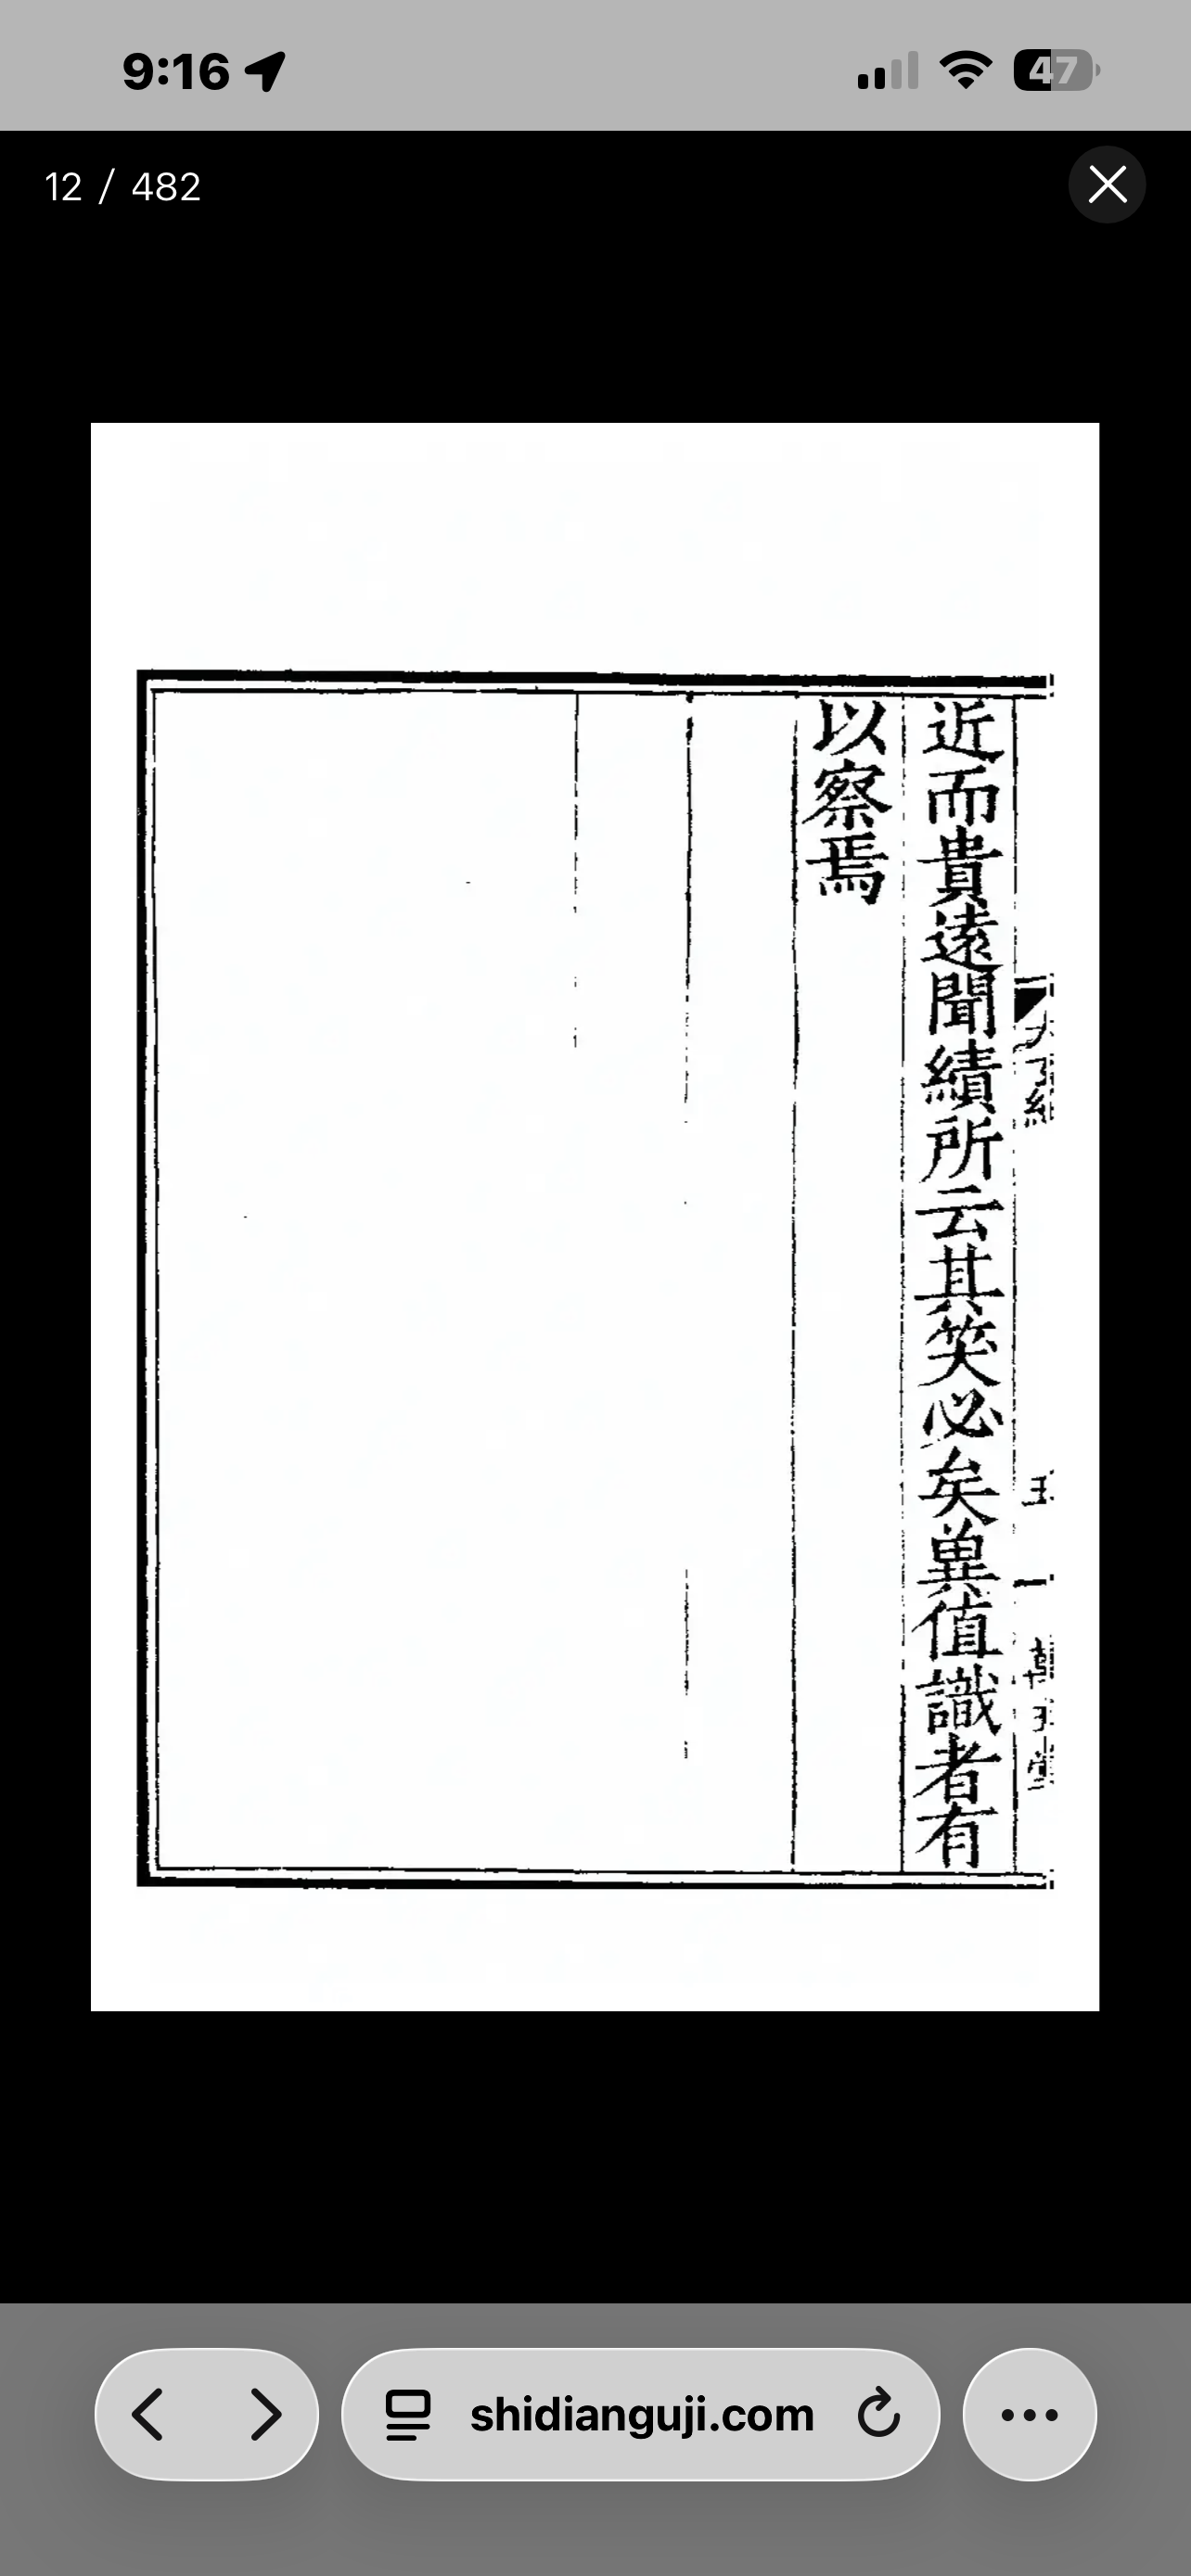 9:16
47
12 / 482
近而貴遠聞績所云其笑必矣兾值識者有
以察焉
shidianguji.com